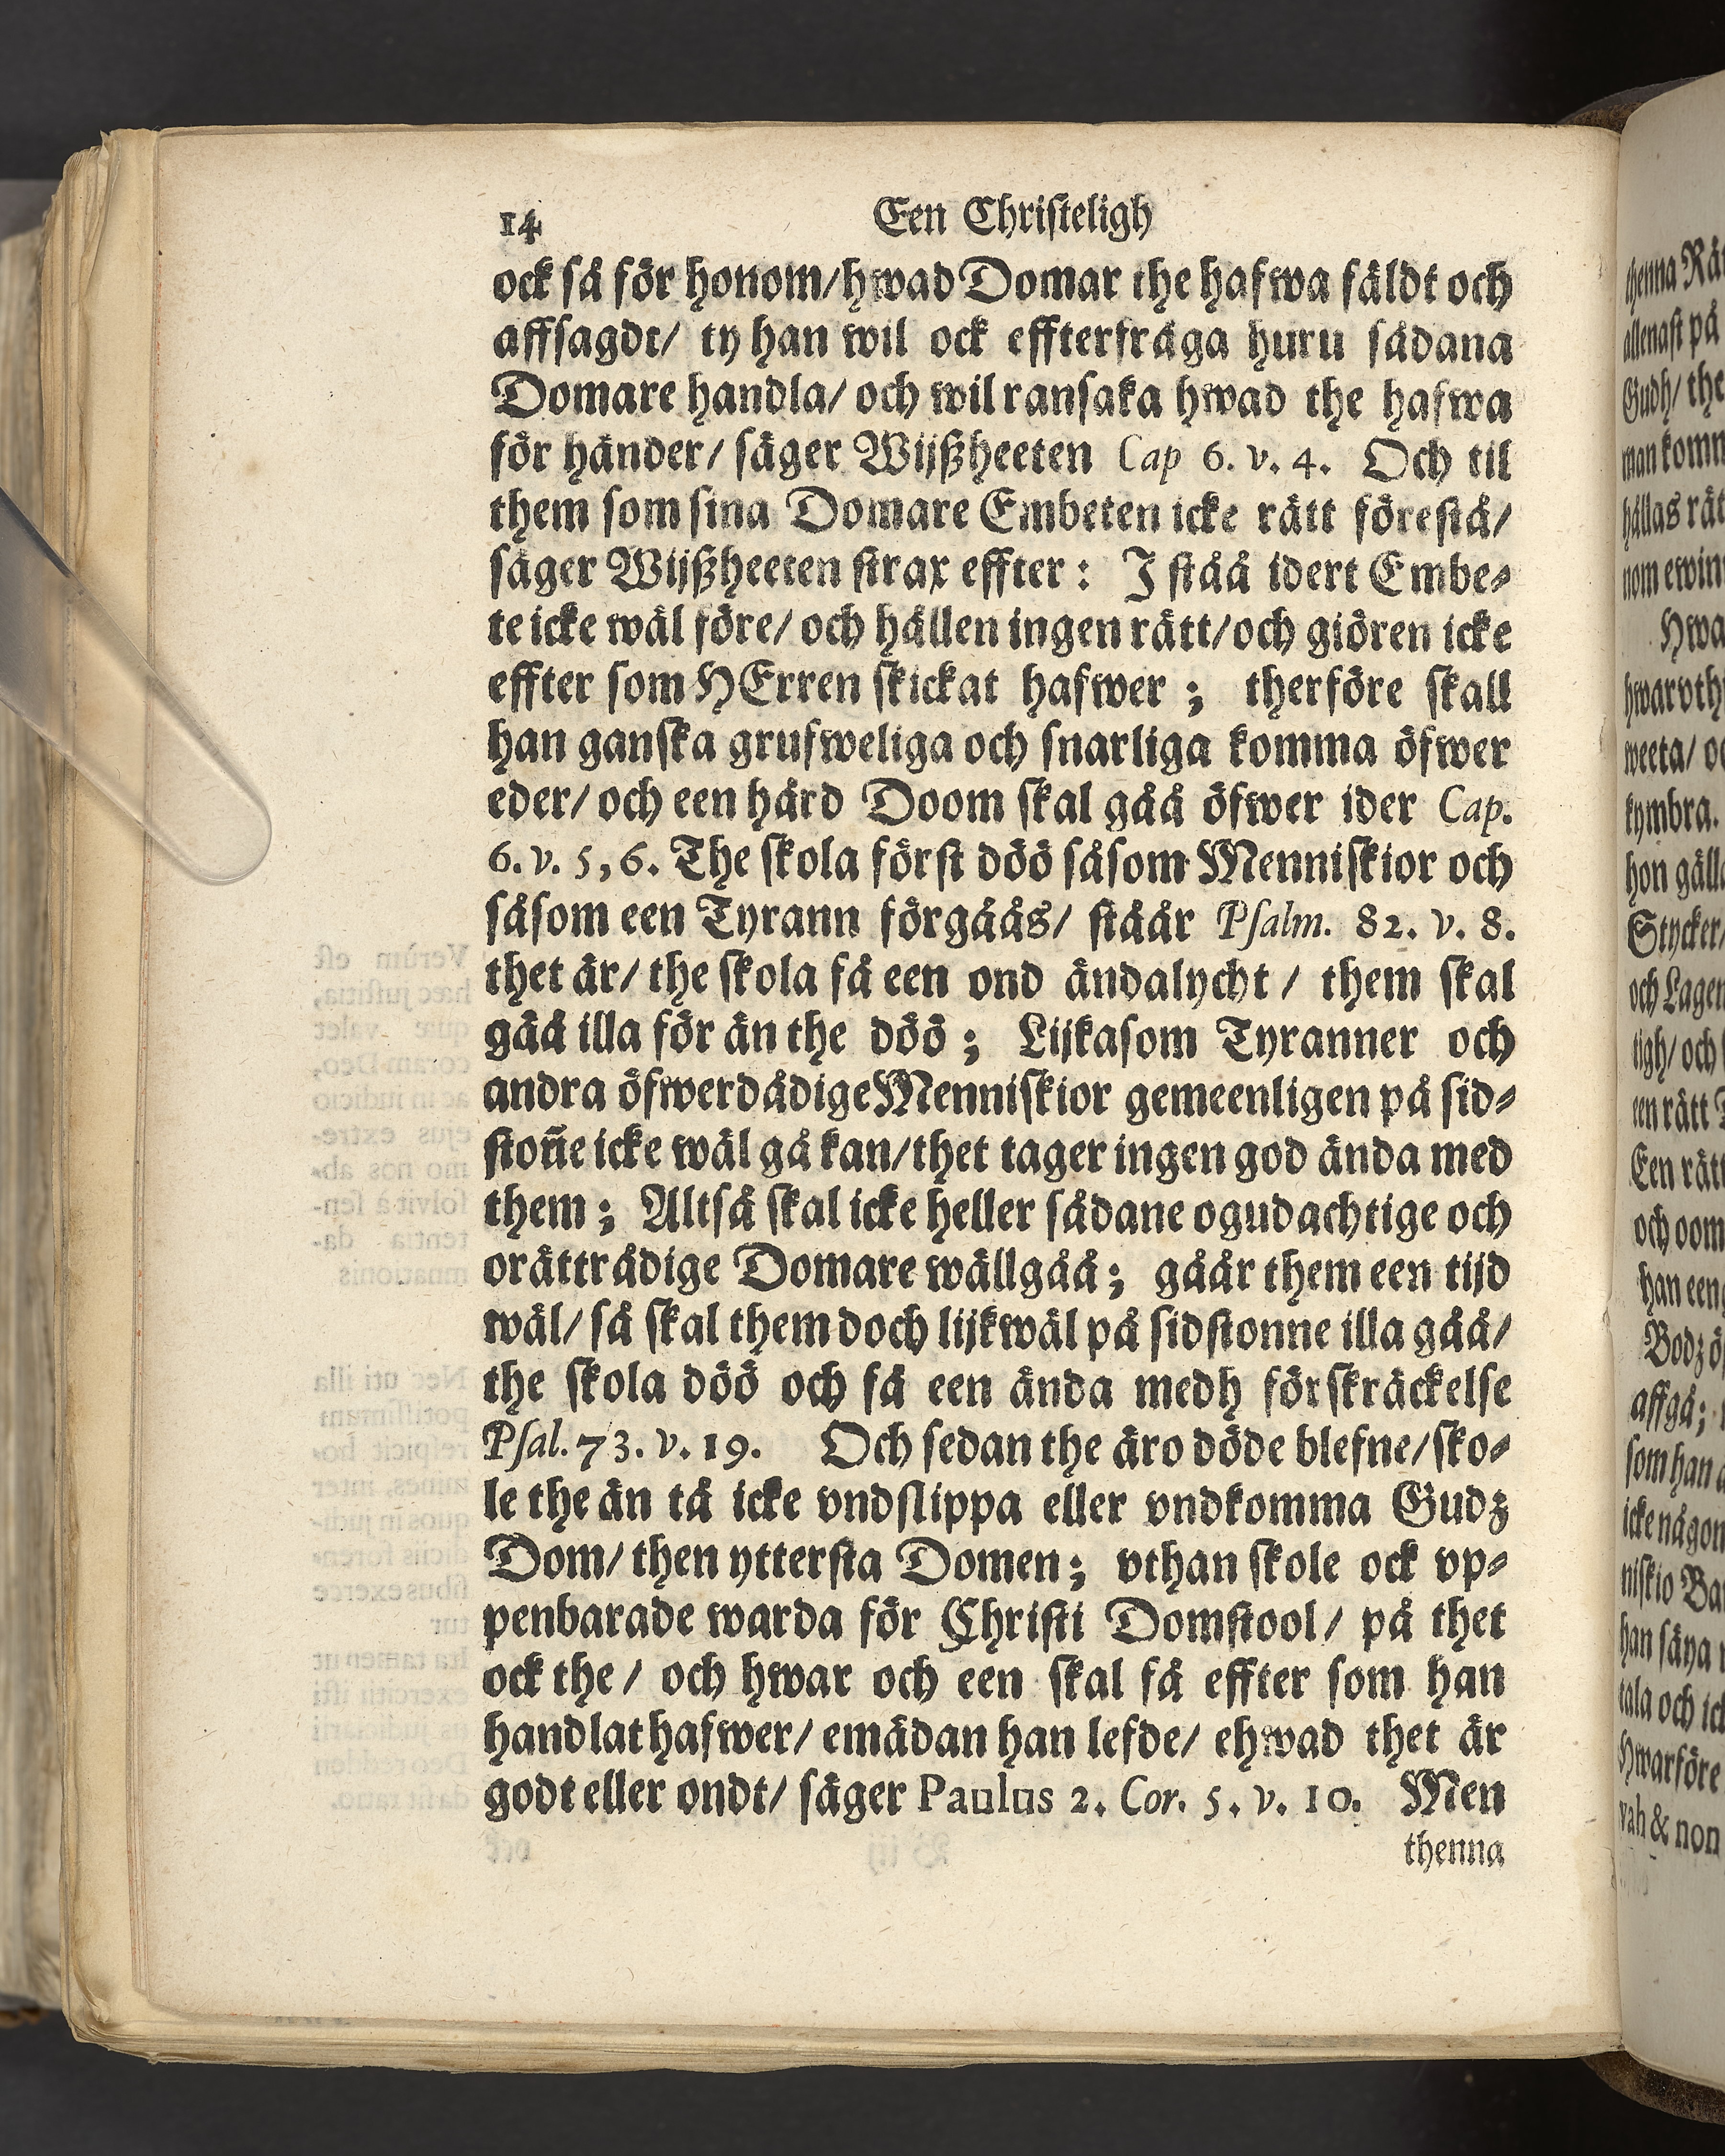 14 Een Christeligh
ock så för honom/hwad Domar the hafwa fäldt och
affsagdt/ ty han wil ock effterfråga huru sådana
Domare handla/ och wil ransaka hwad the hafwa
för händer/ säger Wijßheeten Cap 6. v. 4. Och til
them som sina Domare Embeten icke rätt förestå/
säger Wijßheeten strax effter: I ståå idert Embe-
te icke wäl före/ och hållen ingen rätt/och giören icke
effter som HErren skickat hafwer; therföre skall
han ganska grufweliga och snarliga komma öfwer
eder/ och een hård Doom skal gåå öfwer ider Cap.
6. v. 5, 6. The skola först döö såsom Menniskior och
såsom een Tyrann förgåås/ ståår Psalm. 82. v. 8.
thet är/ the skola få een ond ändalycht/ them skal
gåå illa för än the döö; Lijkasom Tyranner och
andra öfwerdådige Menniskior gemeenligen på sid-
stoñe icke wäl gå kan/thet tager ingen god ända med
them; Altså skal icke heller sådane ogudachtige och
orättrådige Domare wällgåå; gåår them een tijd
wäl/ så skal them doch lijkwäl på sidstonne illa gåå/
the skola döö och få een ända medh förskräckelse
Psal. 73. v. 19. Och sedan the äro döde blefne/sko-
le the än tå icke vndslippa eller vndkomma Gudz
Dom/ then yttersta Domen; vthan skole ock vp-
penbarade warda för Christi Domstool/ på thet
ock the/ och hwar och een skal få effter som han
handlat hafwer/ emädan han lefde/ ehwad thet är
godt eller ondt/ säger Paulus 2. Cor. 5. v. 10. Men
thenna
thenna
allenast på
Gudh/ the
man
hållas
nom
Hwa
weeta/
kymbra.
hon
Stycker/
och Lagen
tigh/ och
een rätt
Een rätt
och
han een
affgå;
som han
icke någon
niskio
han säya
tala och
Hwarföre
vah & non